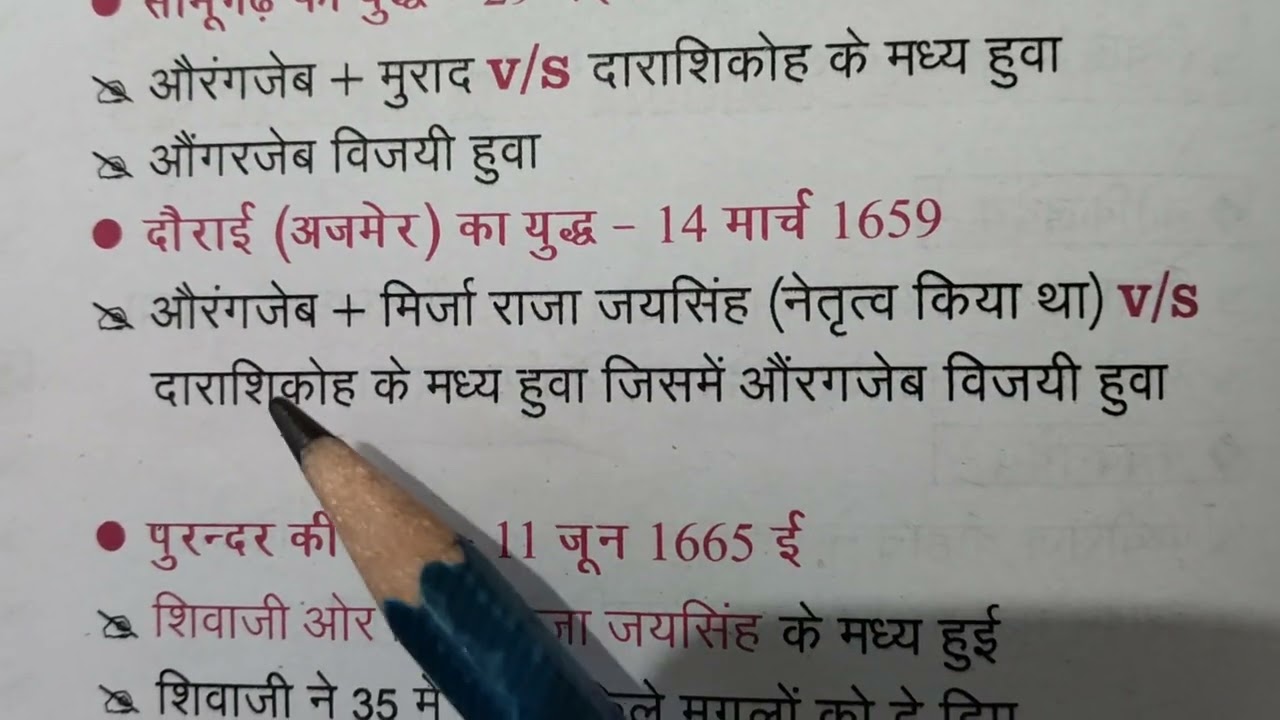 का युद्ध
औरंगजेब + मुराद v/s दाराशिकोह के मध्य हुवा
औंगरजेब विजयी हुवा
दौराई (अजमेर) का युद्ध – 14 मार्च 1659
औरंगजेब + मिर्जा राजा जयसिंह (नेतृत्व किया था) v/s
दाराशिकोह के मध्य हुवा जिसमें औंरगजेब विजयी हुवा
पुरन्दर की 11 जून 1665 ई
शिवाजी ओर जयसिंह के मध्य हुई
शिवाजी ने 35 मुगलों को दे दिए